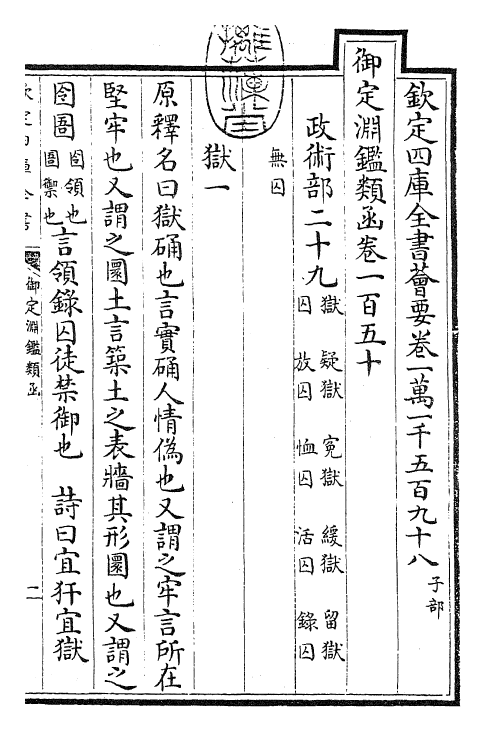 欽定四庫全書薈要卷一萬一千五百九十八 子部
御定淵鑑類函卷一百五十
政術部二十九 獄 疑獄 冤獄 緩獄 留獄
囚 放囚 恤囚 活囚 錄囚
無囚
獄一
原釋名曰獄确也言實确人情偽也又謂之牢言所在
堅牢也又謂之圜土言築土之表牆其形圜也又謂之
囹圄 囹領也 圄禦也 言領錄囚徒禁御也 詩曰宜犴宜獄
御定淵鑑類函